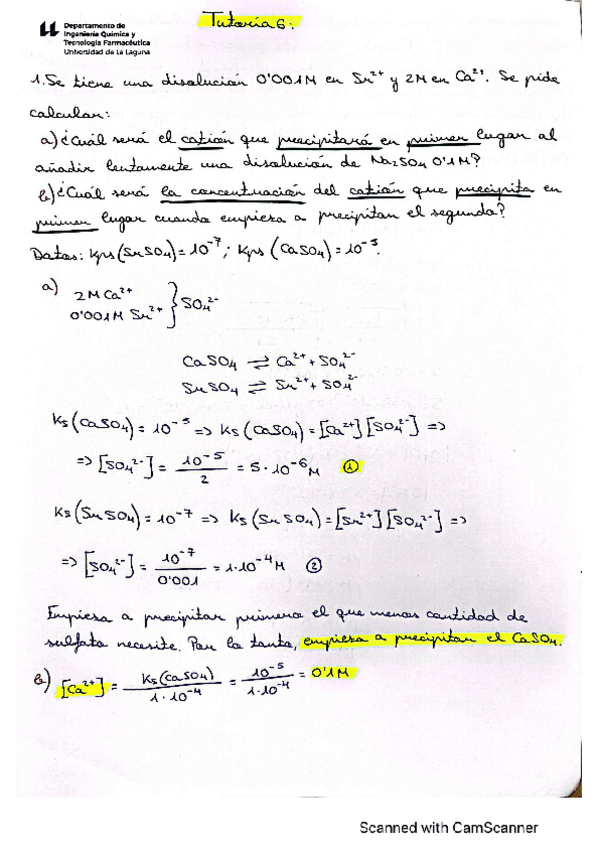 Tutoría 6:
ull Departamento de
Ingeniería Química y
Tecnología Farmacéutica
Universidad de La Laguna
1. Se tiene una disolución 0'001M en Sr²⁺ y 2M en Ca²⁺. Se pide
calcular:
a) ¿Cuál será el catión que precipitará en primer lugar al
añadir lentamente una disolución de Na₂SO₄ 0'1M?
b) ¿Cuál será la concentración del catión que precipita en
primer lugar cuando empieza a precipitar el segundo?
Datos: Kps(SrSO₄) = 10⁻⁷; Kps (CaSO₄) = 10⁻⁵.
a) 2M Ca²⁺
0'001M Sr²⁺ } SO₄²⁻
CaSO₄ ⇌ Ca²⁺ + SO₄²⁻
SrSO₄ ⇌ Sr²⁺ + SO₄²⁻
Ks(CaSO₄) = 10⁻⁵ => Ks(CaSO₄) = [Ca²⁺][SO₄²⁻] =>
=> [SO₄²⁻] = 10⁻⁵/2 = 5·10⁻⁶M ①
Ks(SrSO₄) = 10⁻⁷ => Ks(SrSO₄) = [Sr²⁺][SO₄²⁻] =>
=> [SO₄²⁻] = 10⁻⁷/0'001 = 1·10⁻⁴M ②
Empieza a precipitar primero el que menos cantidad de
sulfato necesite. Por lo tanto, empieza a precipitar el CaSO₄.
b) [Ca²⁺] = Ks(CaSO₄)/1·10⁻⁴ = 10⁻⁵/1·10⁻⁴ = 0'1M
Scanned with CamScanner